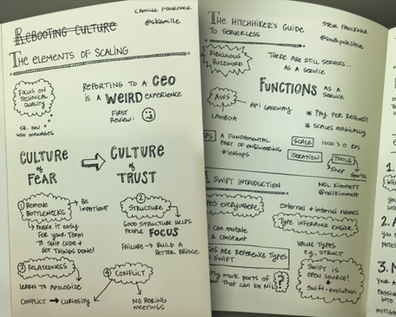 CAMILLE FOURNIER
REBOOTING CULTURE
@skamille
THE ELEMENTS OF SCALING
FOCUS ON
TECHNICAL
QUALITY
REPORTING TO A CEO
IS A WEIRD EXPERIENCE
FIRST
REVIEW:
SR. DEV →
WHO MANAGES
CULTURE
OF
FEAR
CULTURE
OF
TRUST
① REMOVE
BOTTLENECKS
→ BE
IMPATIENT
MAKE IT EASY
FOR YOUR TEAM
TO SHIP CODE +
GET THINGS DONE!
② STRUCTURE
GOOD STRUCTURE HELPS
PEOPLE FOCUS
FAILURE → BUILD A
BETTER BRIDGE
③ RELATEDNESS
LEARN TO APOLOGIZE
CONFLICT → CURIOSITY
④ CONFLICT
NO BORING
MEETINGS
THE HITCHHIKER'S GUIDE
TO SERVERLESS
STEVE FAULKNER
@southpolesteve
RIDICULOUS
BUZZWORD
THERE ARE STILL SERVERS...
AS A SERVICE
FUNCTIONS AS A
SERVICE
AWS
API GATEWAY
LAMBDA
* PAY PER REQUEST
* SCALES MAGICALLY
A FUNDAMENTAL
PART OF ENGINEERING
SCALE 1000> 0 RPS
ITERATION
TOOLS
SWIFT INTRODUCTION
NEIL KIMMETT
@neilkimmett
TYPES EVERYWHERE
external + internal names
TYPE INFERENCE ENGINE
can mutate
constant
VALUE TYPES
e.g. STRUCT
ARE REFERENCE TYPES
SWIFT
SWIFT IS
OPEN SOURCE!
swift-evolution
mark parts of
that can be Nil
?